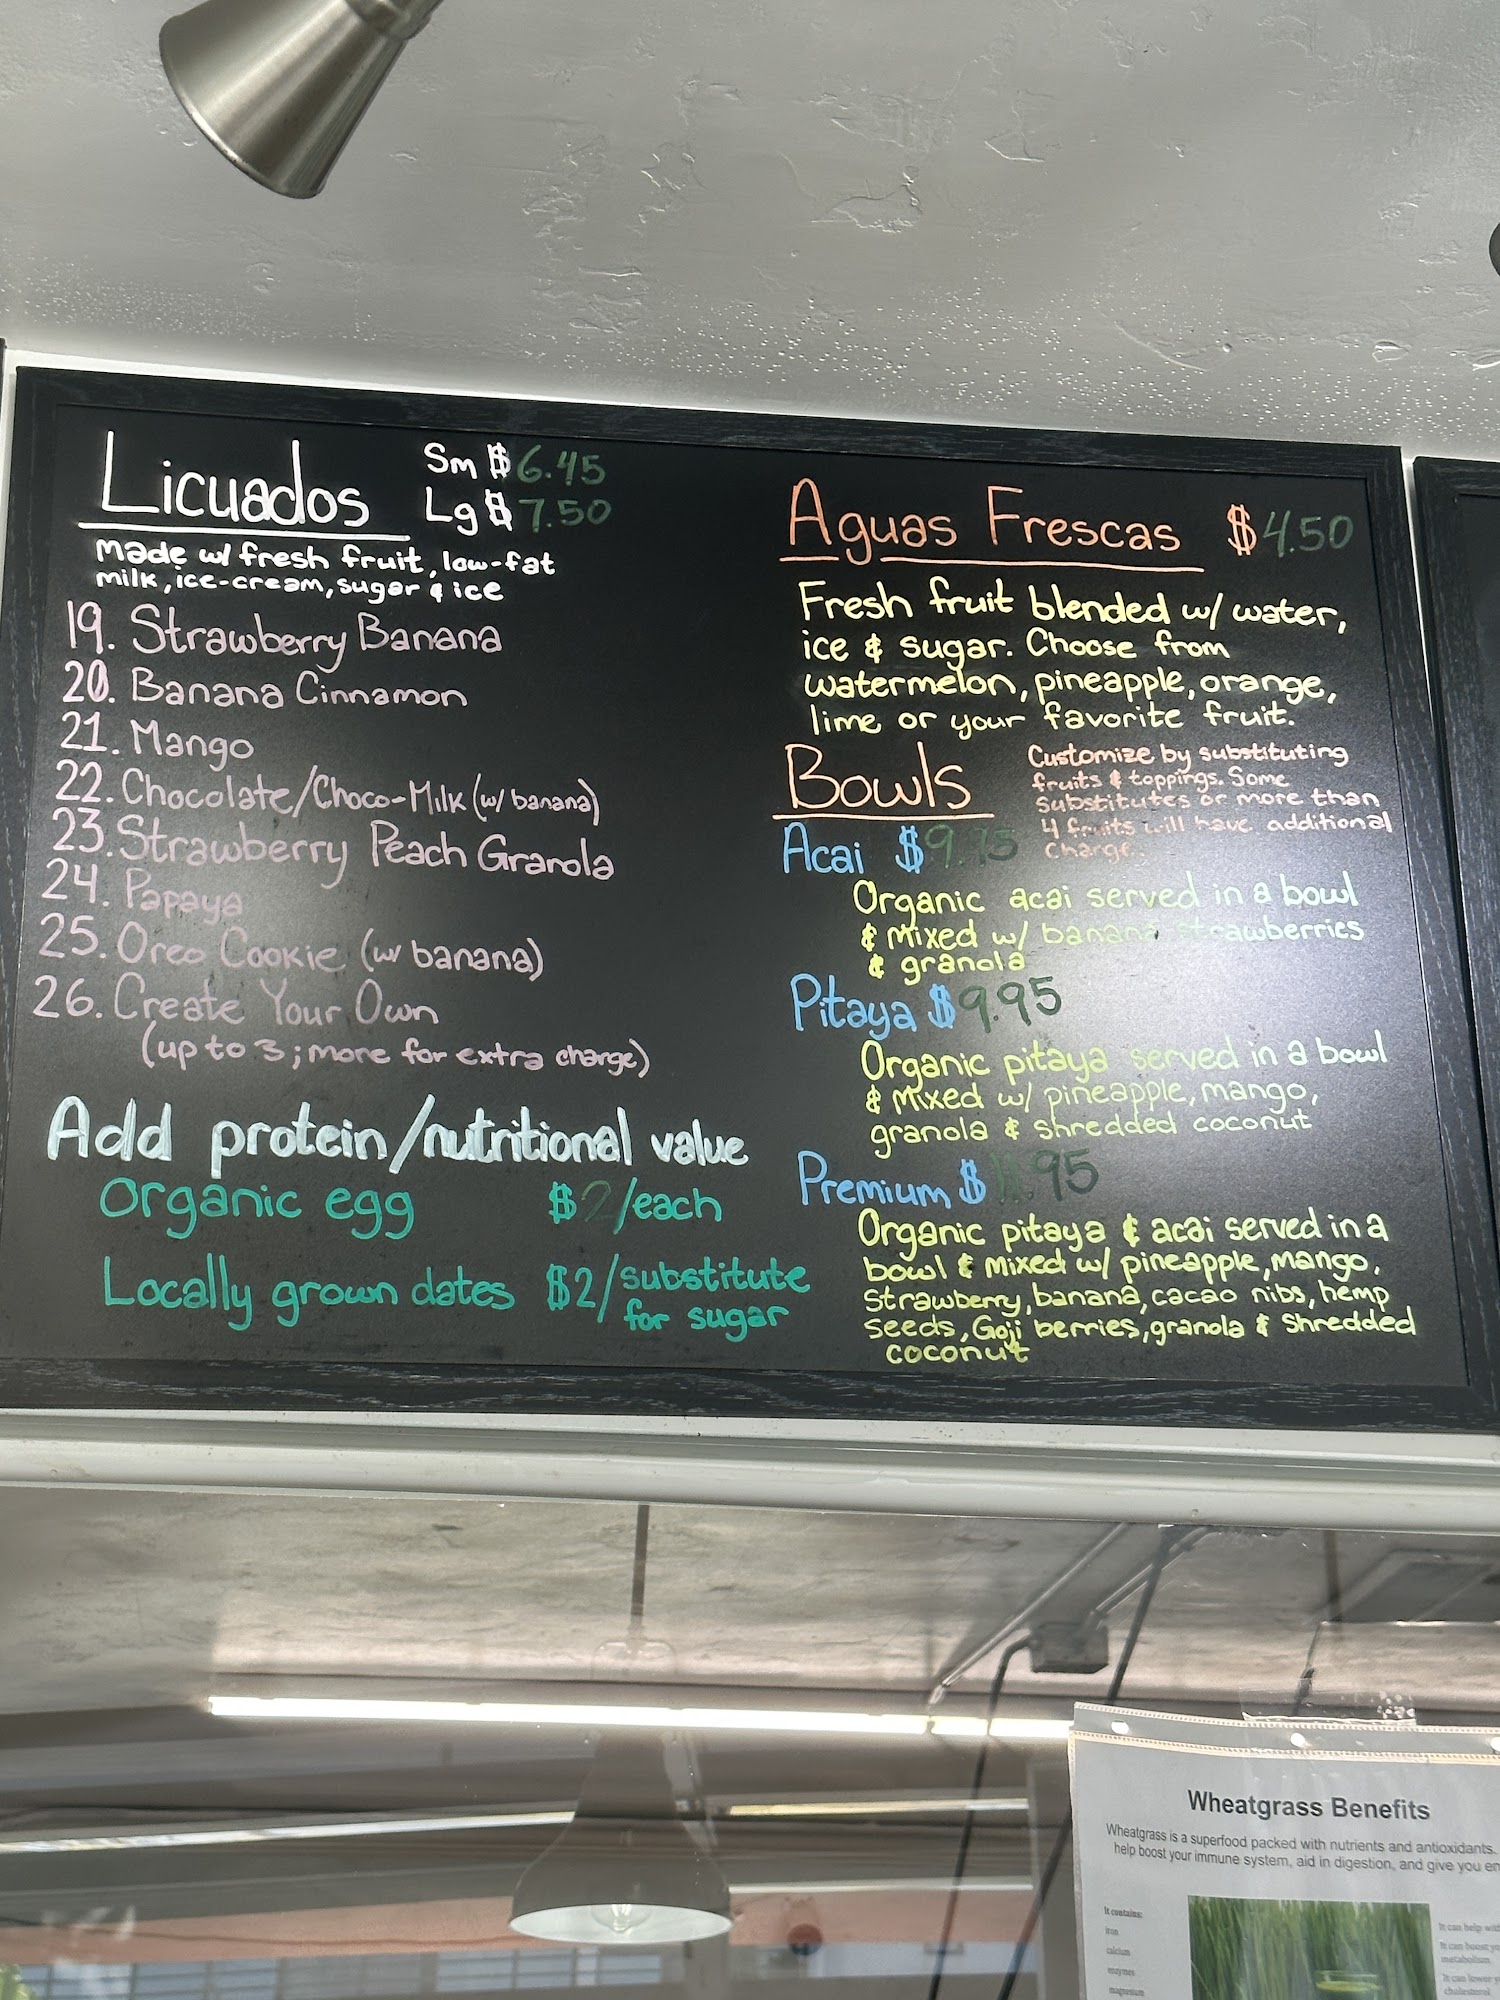 Licuados
Sm $6.45
Lg $7.50
Made w/ fresh fruit, low-fat
milk, ice-cream, sugar & ice
19. Strawberry Banana
20. Banana Cinnamon
21. Mango
22. Chocolate/Choco-Milk (w/ banana)
23. Strawberry Peach Granola
24. Papaya
25. Oreo Cookie (w/ banana)
26. Create Your Own
(up to 3; more for extra charge)
Add protein/nutritional value
Organic egg $2/each
Locally grown dates $2/substitute
for sugar
Aguas Frescas $4.50
Fresh fruit blended w/ water,
ice & sugar. Choose from
watermelon, pineapple, orange,
lime or your favorite fruit.
Bowls
Customize by substituting
fruits & toppings. Some
substitutes or more than
4 fruits will have additional
charge.
Acai $9.95
Organic acai served in a bowl
& mixed w/ banana strawberries
& granola
Pitaya $9.95
Organic pitaya served in a bowl
& mixed w/ pineapple, mango,
granola & shredded coconut
Premium $11.95
Organic pitaya & acai served in a
bowl & mixed w/ pineapple, mango,
strawberry, banana, cacao nibs, hemp
seeds, Goji berries, granola & shredded
coconut
Wheatgrass Benefits
Wheatgrass is a superfood packed with nutrients and antioxidants.
help boost your immune system, aid in digestion, and give you en
It contains:
iron
calcium
enzymes
magnesium
It can help wit
It can boost yo
metabolism
It can lower y
cholesterol